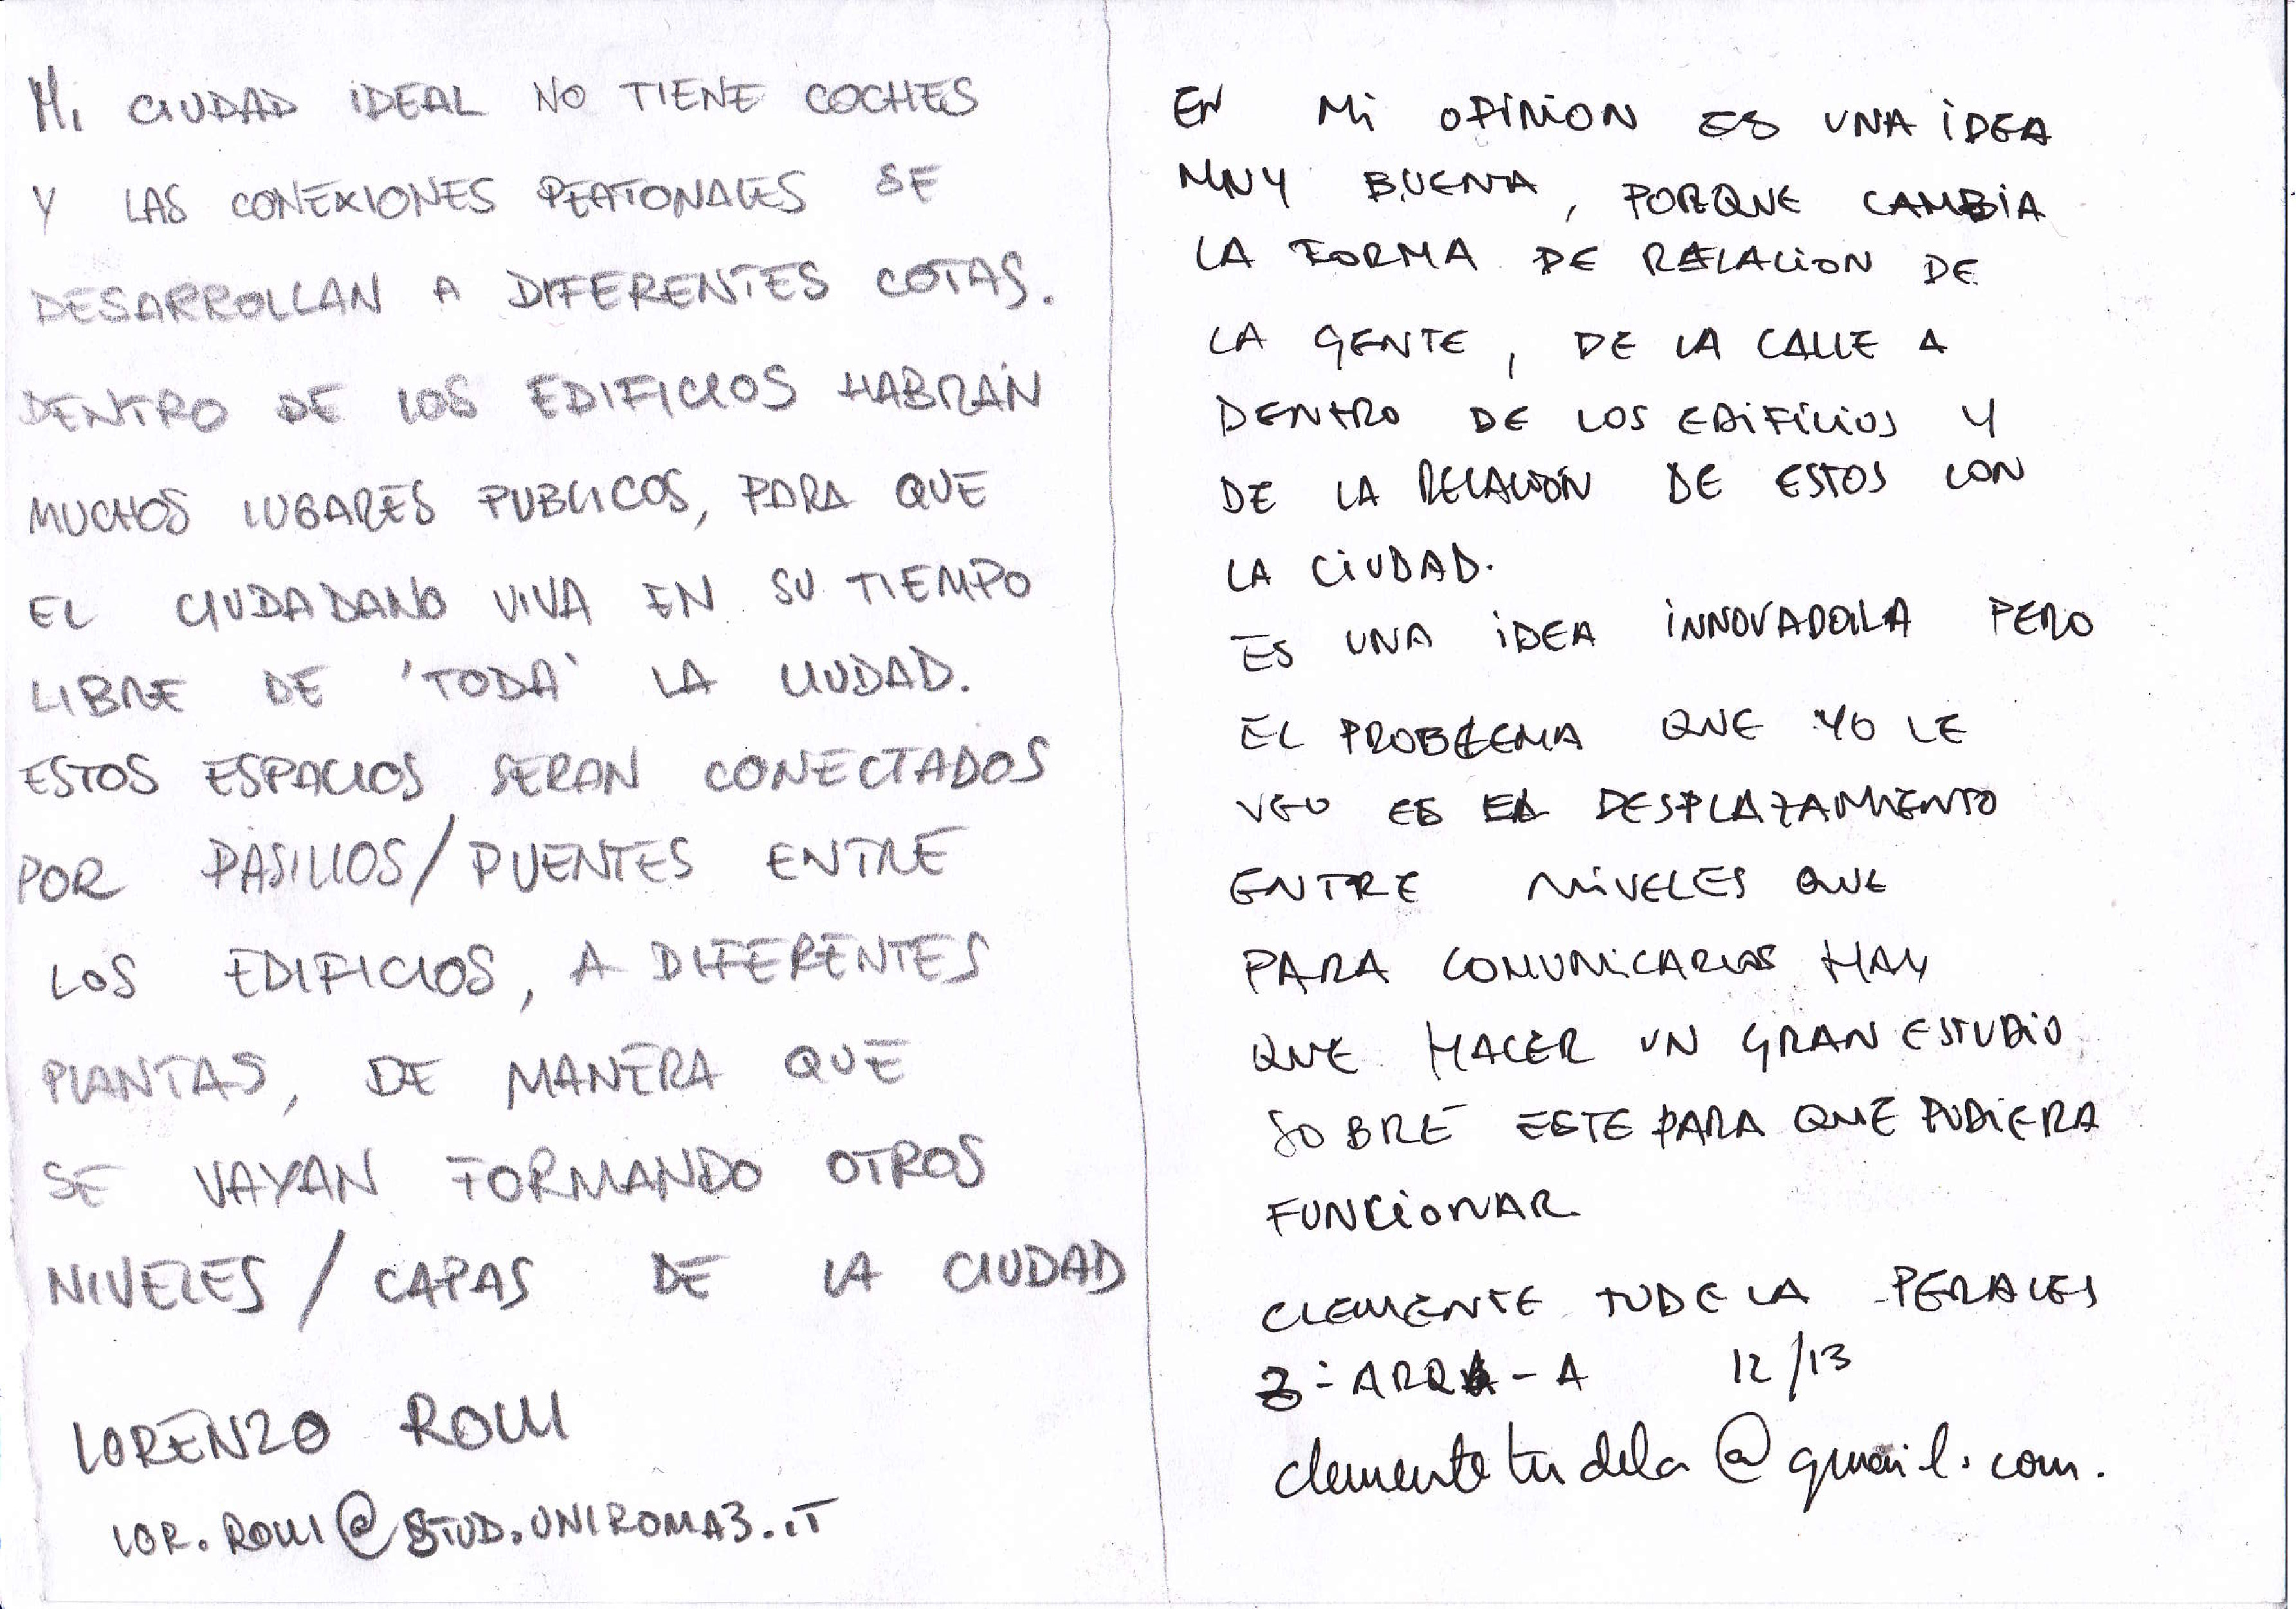 Mi CIUDAD IDEAL NO TIENE COCHES
Y LAS CONEXIONES PEATONALES SE
DESARROLLAN A DIFERENTES COTAS.
DENTRO DE LOS EDIFICIOS HABRAN
MUCHOS LUGARES PUBLICOS, PARA QUE
EL CIUDADANO VIVA EN SU TIEMPO
LIBRE DE 'TODA' LA CIUDAD.
ESTOS ESPACIOS SERAN CONECTADOS
POR PASILLOS/PUENTES ENTRE
LOS EDIFICIOS, A DIFERENTES
PLANTAS, DE MANERA QUE
SE VAYAN FORMANDO OTROS
NIVELES / CAPAS DE LA CIUDAD
LORENZO ROLLI
LOR.ROLLI@STUD.UNIROMA3.IT
EN Mi OPINION ES UNA IDEA
MUY BUENA, PORQUE CAMBIA
LA FORMA DE RELACION DE
LA GENTE, DE LA CALLE A
DENTRO DE LOS EDIFICIOS Y
DE LA RELACIÓN DE ESTOS CON
LA CIUDAD.
ES UNA IDEA INNOVADORA PERO
EL PROBLEMA QUE YO LE
VEO ES EL DESPLAZAMIENTO
ENTRE NIVELES QUE
PARA COMUNICARLOS HAY
QUE HACER UN GRAN ESTUDIO
SOBRE ESTE PARA QUE PUDIERA
FUNCIONAR
CLEMENTE TUDELA PERALES
- A 12/13
clementetudela@gmail.com.